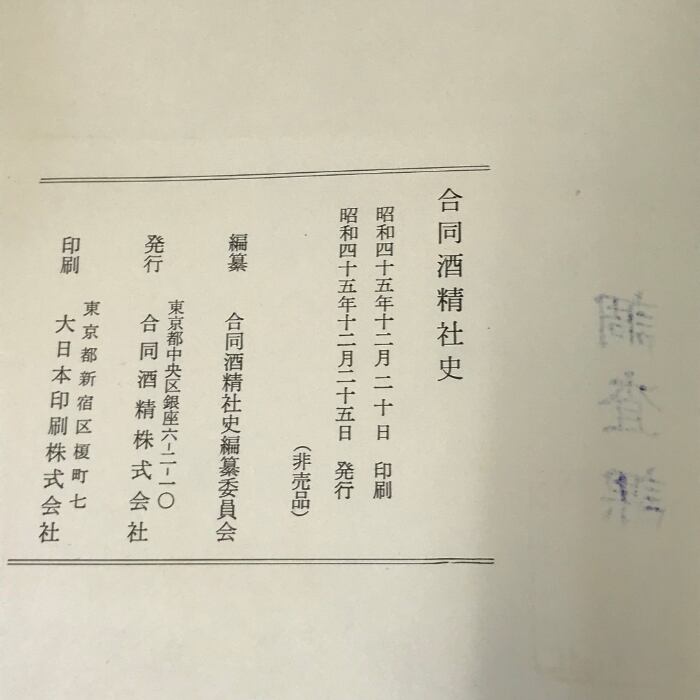 調査課
合同酒精社史
昭和四十五年十二月二十日 印刷
昭和四十五年十二月二十五日 発行
(非売品)
編纂 合同酒精社史編纂委員会
東京都中央区銀座六-二-一〇
発行 合同酒精株式会社
東京都新宿区榎町七
印刷 大日本印刷株式会社